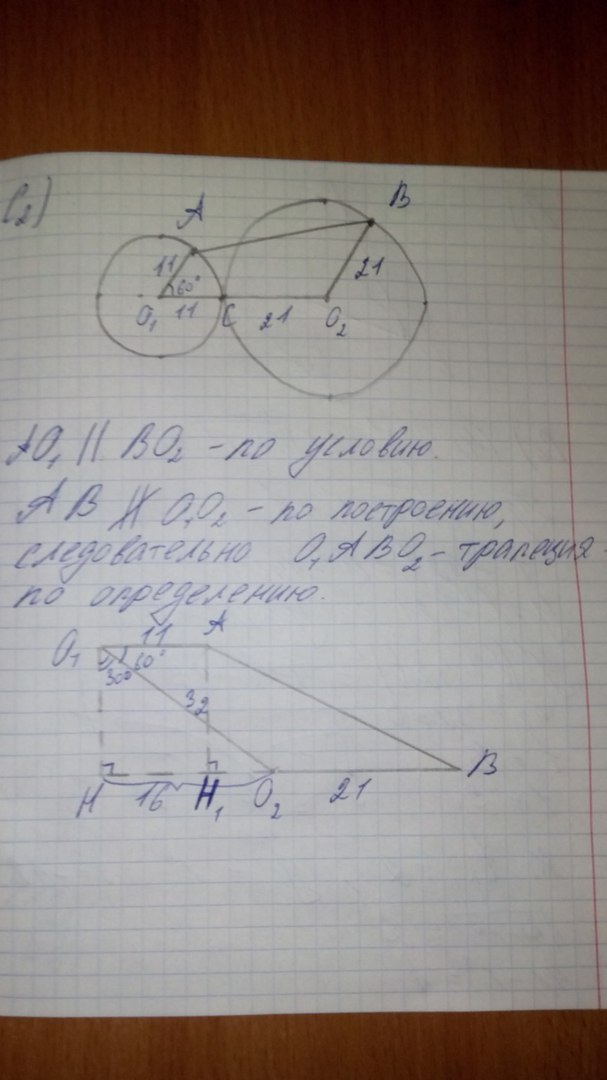 2)
A
B
11
60°
21
O₁
11
C
21
O₂
AO₁ || BO₂ - по условию.
AB ∦ O₁O₂ - по построению,
следовательно O₁ABO₂ - трапеция
по определению.
11
A
O₁
60°
30°
32
B
H
16
H₁
O₂
21